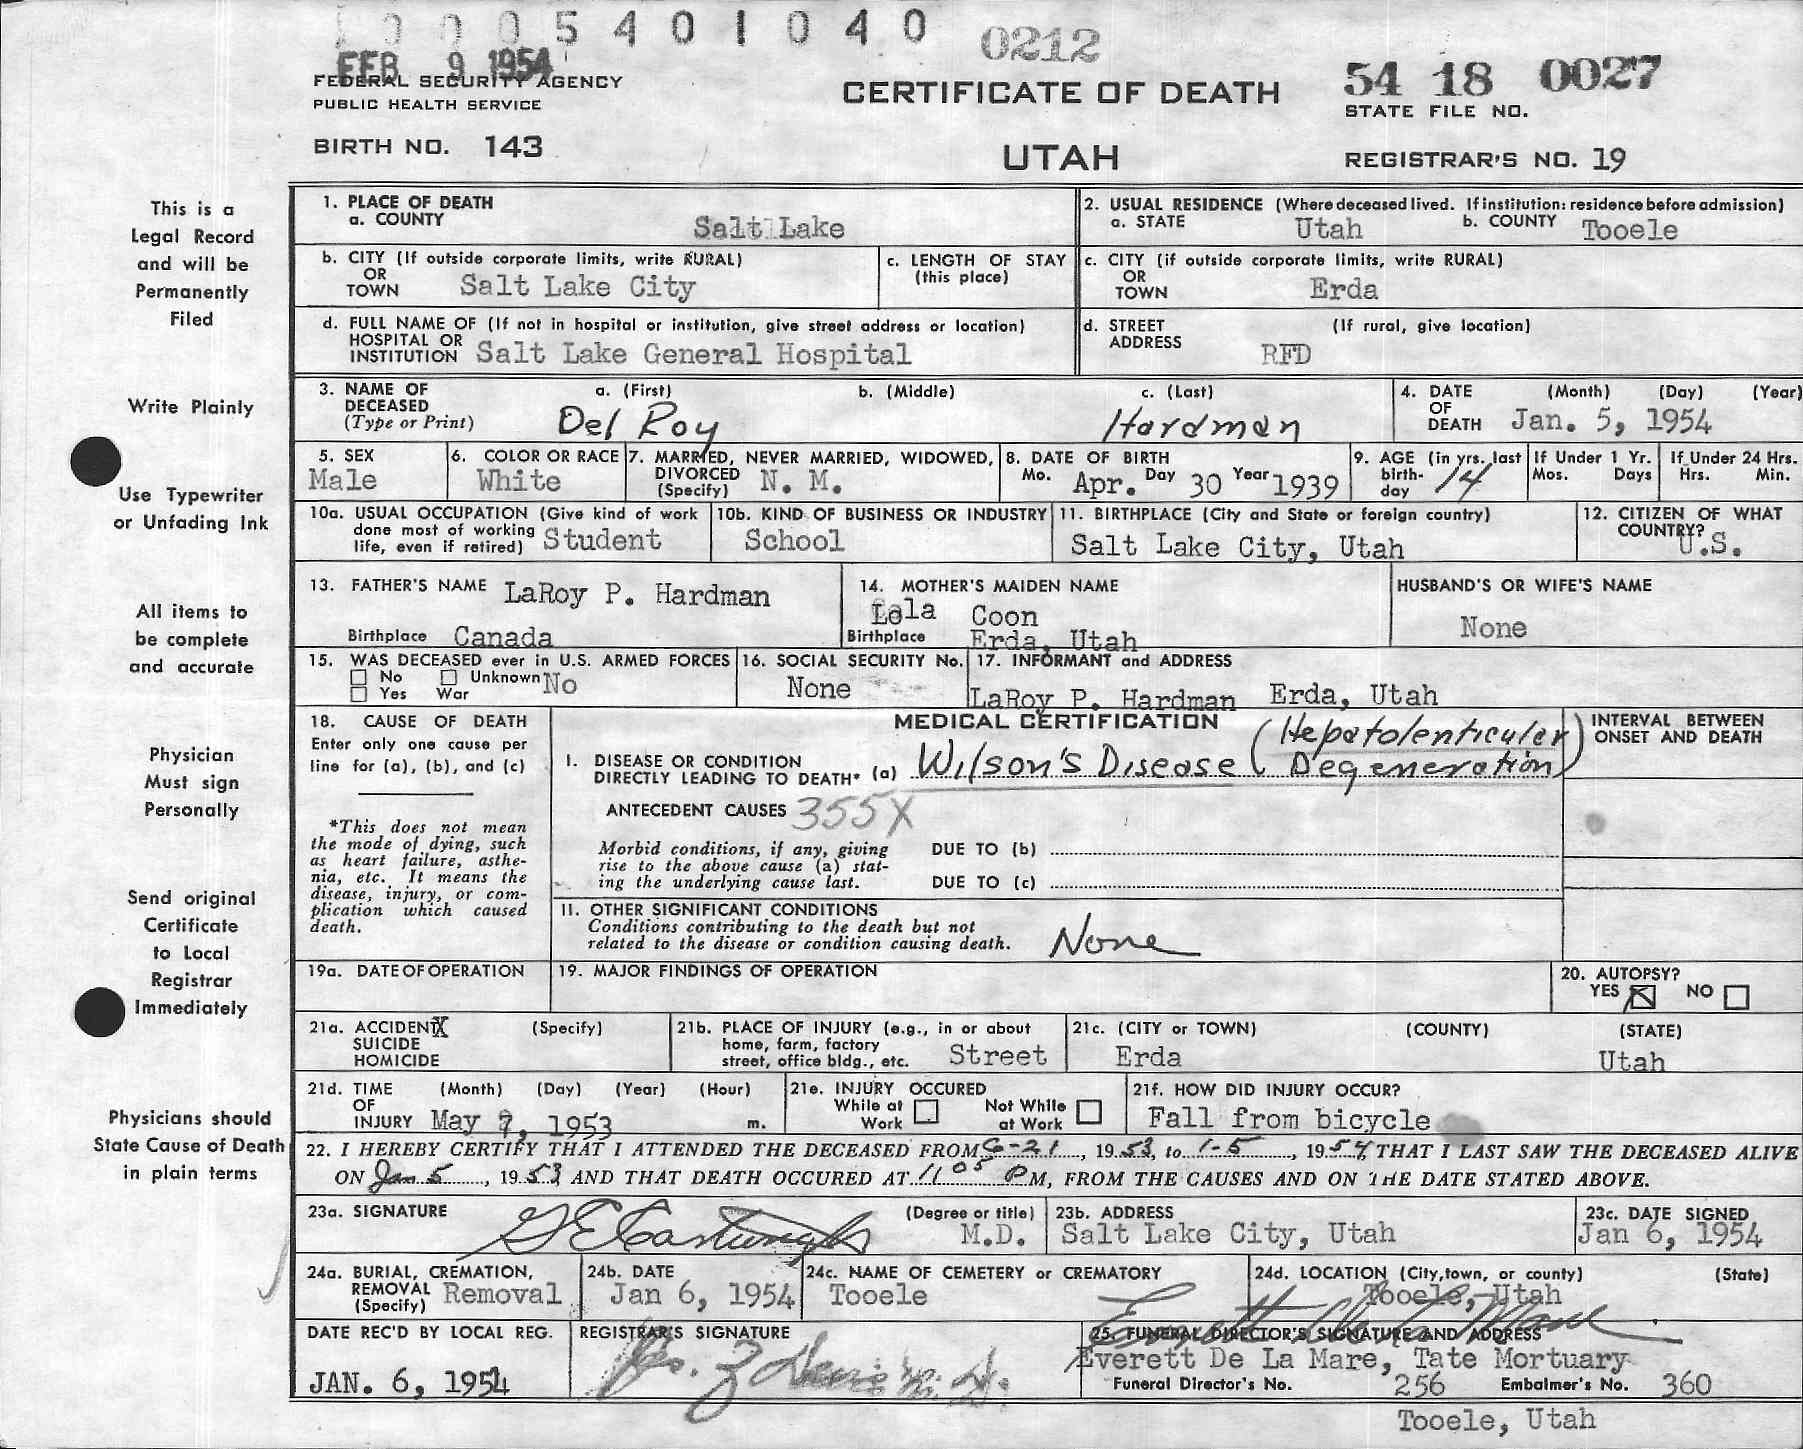 0005401040
0212
FEB 9 1954
FEDERAL SECURITY AGENCY
PUBLIC HEALTH SERVICE
CERTIFICATE OF DEATH
54 18 0027
STATE FILE NO.
BIRTH NO. 143
UTAH
REGISTRAR'S NO. 19
This is a
Legal Record
and will be
Permanently
Filed
Write Plainly
Use Typewriter
or Unfading Ink
All items to
be complete
and accurate
Physician
Must sign
Personally
Send original
Certificate
to Local
Registrar
Immediately
Physicians should
State Cause of Death
in plain terms
1. PLACE OF DEATH
a. COUNTY Salt Lake
2. USUAL RESIDENCE (Where deceased lived. If institution: residence before admission)
a. STATE Utah b. COUNTY Tooele
b. CITY (If outside corporate limits, write RURAL)
OR
TOWN Salt Lake City
c. LENGTH OF STAY
(this place)
c. CITY (if outside corporate limits, write RURAL)
OR
TOWN Erda
d. FULL NAME OF (If not in hospital or institution, give street address or location)
HOSPITAL OR
INSTITUTION Salt Lake General Hospital
d. STREET (If rural, give location)
ADDRESS RFD
3. NAME OF DECEASED
(Type or Print)
a. (First) b. (Middle) c. (Last)
Del Roy Hardman
4. DATE (Month) (Day) (Year)
OF
DEATH Jan. 5, 1954
5. SEX
Male
6. COLOR OR RACE
White
7. MARRIED, NEVER MARRIED, WIDOWED,
DIVORCED
(Specify) N. M.
8. DATE OF BIRTH
Mo. Apr. Day 30 Year 1939
9. AGE (in yrs. last
birth-
day 14
If Under 1 Yr.
Mos. Days
If Under 24 Hrs.
Hrs. Min.
10a. USUAL OCCUPATION (Give kind of work
done most of working
life, even if retired) Student
10b. KIND OF BUSINESS OR INDUSTRY
School
11. BIRTHPLACE (City and State or foreign country)
Salt Lake City, Utah
12. CITIZEN OF WHAT
COUNTRY?
U.S.
13. FATHER'S NAME LaRoy P. Hardman
Birthplace Canada
14. MOTHER'S MAIDEN NAME
Lola Coon
Birthplace Erda, Utah
HUSBAND'S OR WIFE'S NAME
None
15. WAS DECEASED ever in U.S. ARMED FORCES
No Unknown No
Yes War
16. SOCIAL SECURITY No.
None
17. INFORMANT and ADDRESS
LaRoy P. Hardman Erda, Utah
18. CAUSE OF DEATH
Enter only one cause per
line for (a), (b), and (c)
*This does not mean
the mode of dying, such
as heart failure, asthe-
nia, etc. It means the
disease, injury, or com-
plication which caused
death.
MEDICAL CERTIFICATION
INTERVAL BETWEEN
ONSET AND DEATH
I. DISEASE OR CONDITION
DIRECTLY LEADING TO DEATH* (a) Wilson's Disease (Hepatolenticular
Degeneration)
ANTECEDENT CAUSES 355X
Morbid conditions, if any, giving
rise to the above cause (a) stat-
ing the underlying cause last.
DUE TO (b)
DUE TO (c)
11. OTHER SIGNIFICANT CONDITIONS
Conditions contributing to the death but not
related to the disease or condition causing death. None
19a. DATE OF OPERATION
19. MAJOR FINDINGS OF OPERATION
20. AUTOPSY?
YES NO
21a. ACCIDENT X (Specify)
SUICIDE
HOMICIDE
21b. PLACE OF INJURY (e.g., in or about
home, farm, factory
street, office bldg., etc. Street
21c. (CITY or TOWN) (COUNTY) (STATE)
Erda Utah
21d. TIME (Month) (Day) (Year) (Hour)
OF
INJURY May 7, 1953 m.
21e. INJURY OCCURED
While at Work Not While at Work
21f. HOW DID INJURY OCCUR?
Fall from bicycle
22. I HEREBY CERTIFY THAT I ATTENDED THE DECEASED FROM 6-21, 1953, to 1-5, 1954, THAT I LAST SAW THE DECEASED ALIVE
ON Jan 5, 1953 AND THAT DEATH OCCURED AT 11 05 P M, FROM THE CAUSES AND ON THE DATE STATED ABOVE.
23a. SIGNATURE (Degree or title)
M.D.
23b. ADDRESS
Salt Lake City, Utah
23c. DATE SIGNED
Jan 6, 1954
24a. BURIAL, CREMATION,
REMOVAL
(Specify) Removal
24b. DATE
Jan 6, 1954
24c. NAME OF CEMETERY or CREMATORY
Tooele
24d. LOCATION (City, town, or county) (State)
Tooele, Utah
DATE REC'D BY LOCAL REG.
JAN. 6, 1954
REGISTRAR'S SIGNATURE
Everett De La Mare
25. FUNERAL DIRECTOR'S SIGNATURE AND ADDRESS
Everett De La Mare, Tate Mortuary
Funeral Director's No. 256 Embalmer's No. 360
Tooele, Utah